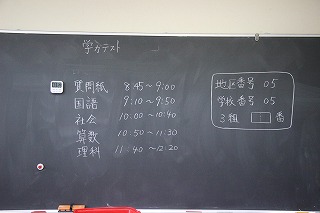 学力テスト
質問紙 8:45～9:00
国語 9:10～9:50
社会 10:00～10:40
算数 10:50～11:30
理科 11:40～12:20
地区番号 05
学校番号 05
3組 番